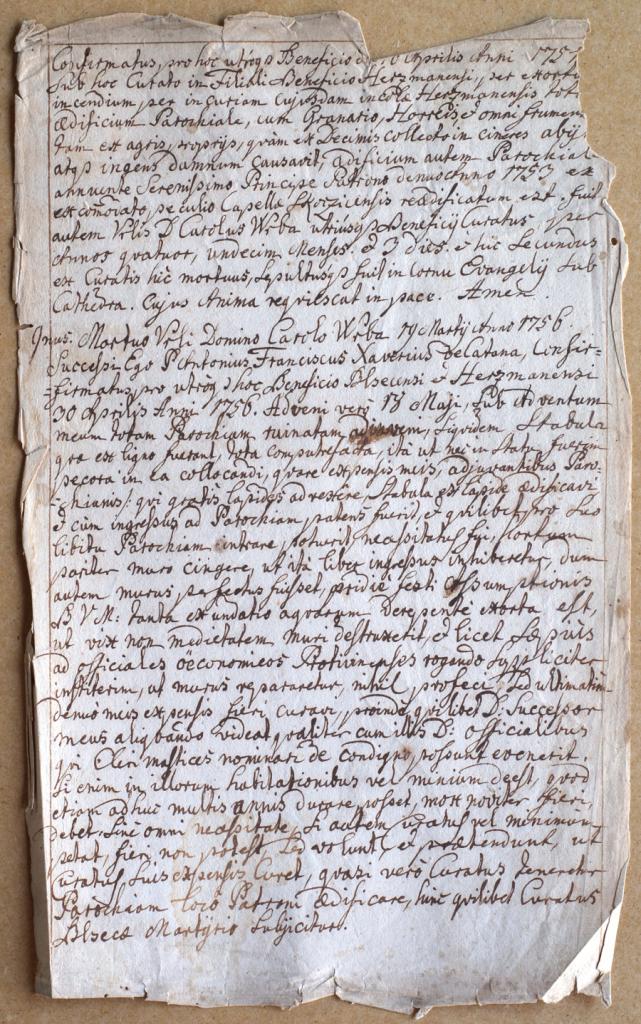 Confirmatus, pro hoc utroq Beneficio d. 0 Aprilis Anni 1752
Sub hoc Curato in Filiali Beneficio Herzmanensi, per exortu
incendium, per incuriam Cujusdam incolæ Herzmanensis tot
Ædificium Parochiale, cum Granario, Horreis et omni frumen
tam ex agris proprijs, quàm ex Decimis collecto in cineres abijt
atq ingens damnum causavit, ædificium autem Parochial
annuente Serenissimo Principe Patrono denuo Anno 1753 ex
ex comorato peculio Capellæ Skoczicensis reædificatum est. fuit
autem Vrlis D Carolus Wrba utriusq Beneficij Curatus per
Annos quatuor, undecim Menses. et 3 dies. et hic Secundus
est Curatis hic mortuus, Sepultusq fuit in Cornu Evangelij Sub
Cathedra. Cujus Anima requiescat in pace. Amen.
Mortuo Vrli Domino Carolo Wrba 19 Martij Anno 1756.
Successi Ego P Antonius Franciscus Xaverius de Catana, Confir=
=firmatus pro utroq hoc Beneficio Blsecensi et Herzmanensi
30 Aprilis Anni 1756. Adveni verò 18 Maji, Sub Adventum
meum totam Parochiam ruinatam, siquidem Stabula
quæ ex ligno fuerant, tota computrefacta, ità ut nec in Statu fuerim
pecora in ea collocandi, quare expensis meis, adjuvantibus Paro-
-chianis/: qui gratis lapides advexere, Stabula ex lapide ædificavi
et cum ingressus ad Parochiam, patens fuerit, et quilibet pro Suo
libitu Parochiam intrare potuerit, necessitatus fui, hortum
pariter muro cingere, ut ità liber ingressus inhiberetur, dum
autem murus perfectus fuisset, pridiè festi Assumptionis
B V M: tanta exundatio aquarum derepentè exorta est,
ut vix non medietatem muri destruxerit, et licet Sæpius
ad officiales oeconomicos Protivinenses rogando Suppliciter
institerim, ut murus repararetur, nihil profeci, Sed ultimatim
denuo meis expensis fieri curavi, proinde quilibet D: Successor
meus aliquando videat qualiter cum illis D: officialibus
qui Cleri mastices nominari de condigno possunt evenerit.
Si enim in illorum habitationibus vel minium deest, quod
etiam adhuc multis annis durare posset, mox noviter fieri,
debet Sine omni necessitate, Si autem Curatus vel minimum
petat, fieri non potest Sed volunt, et prætendunt, ut
Curatus Suis expensis Curet, quasi verò Curatus teneretur
Parochiam loco Patroni Ædificare, hinc quilibet Curatus
Blsecæ Martyrio Subjicitur.